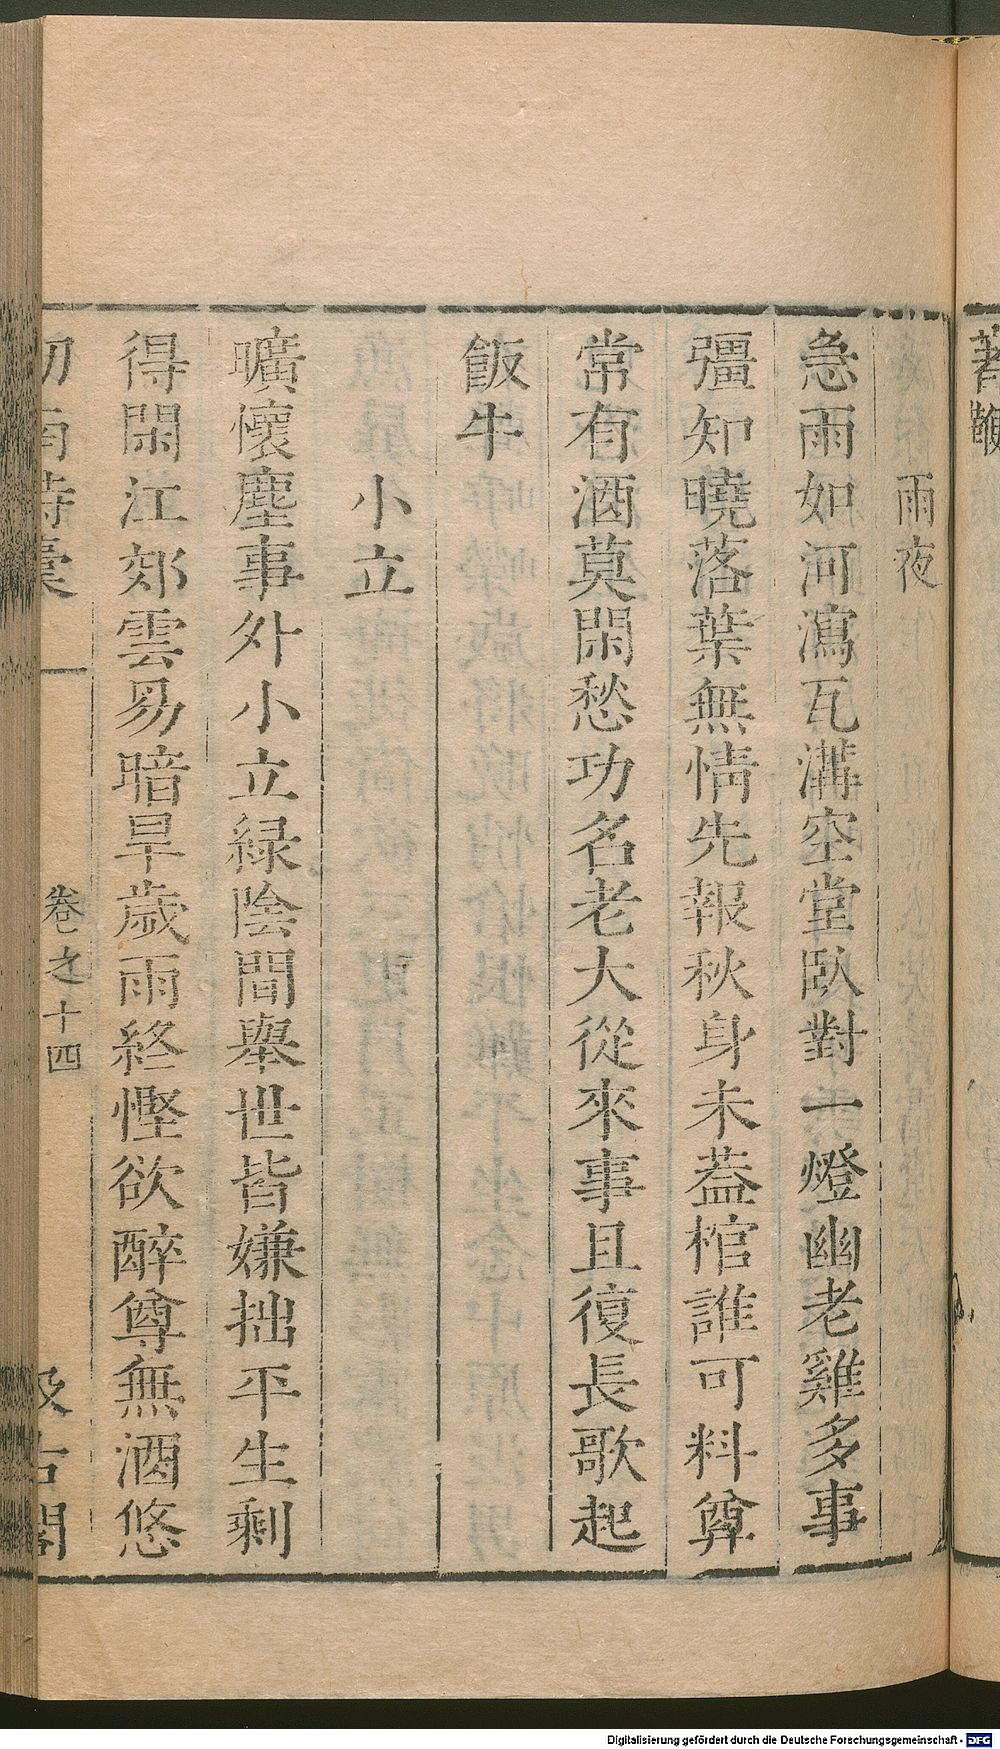 著鞭
雨夜
急雨如河瀉瓦溝空堂臥對一燈幽老雞多事
彊知曉落葉無情先報秋身未蓋棺誰可料尊
常有酒莫閑愁功名老大從來事且復長歌起
飯牛
小立
曠懷塵事外小立綠陰間舉世皆嫌拙平生剩
得閑江郊雲易暗旱歲雨終慳欲醉尊無酒悠
劒南詩稾 卷之十四 汲古閣
Digitalisierung gefördert durch die Deutsche Forschungsgemeinschaft - DFG